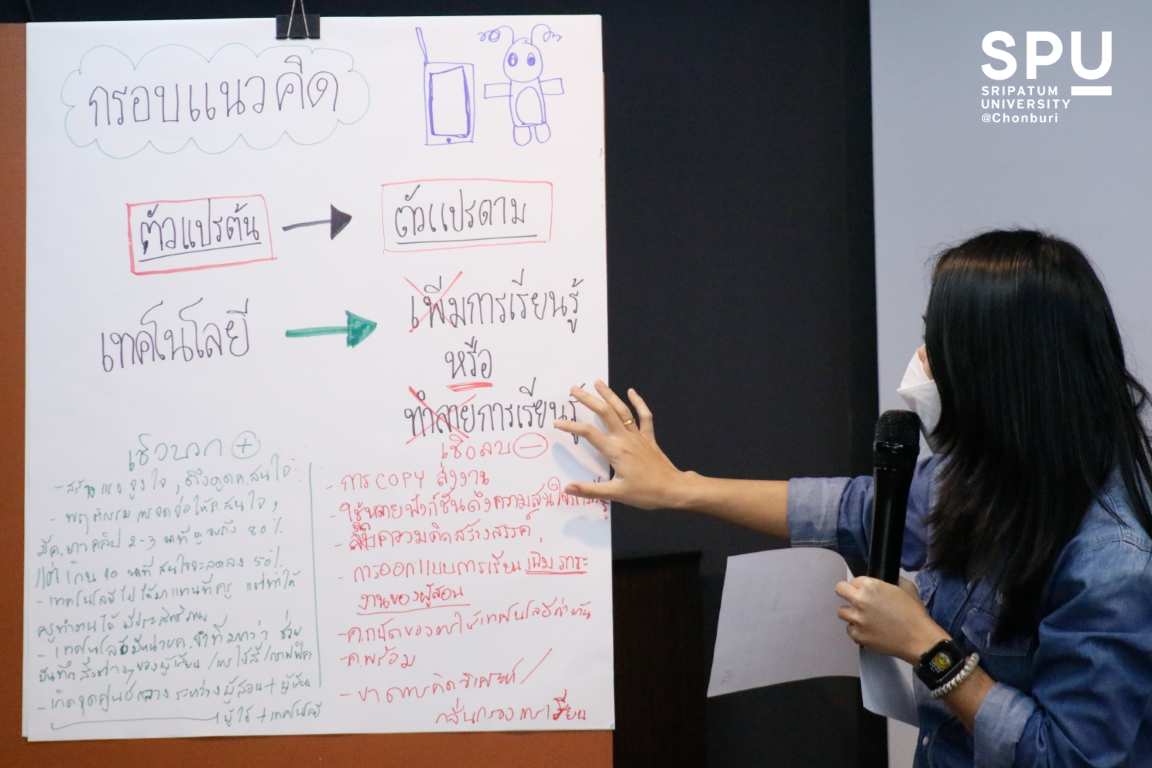 กรอบแนวคิด
ตัวแปรต้น
ตัวแปรตาม
เทคโนโลยี
เพิ่มการเรียนรู้
หรือ
ทำลายการเรียนรู้
เชิงบวก +
- สร้างแรงจูงใจ, ดึงดูดค.สนใจ
- พฤติกรรม การจดจ่อให้ค.สนใจ,
มีค.ยาวคลิป 2-3 นาที ดูจบถึง 80%
แต่เกิน 10 นาที สนใจจะลดลง 50%
- เทคโนโลยีไม่ได้มาแทนที่ครู แต่ทำให้
ครูทำงานได้ มีประสิทธิภาพ
- เทคโนโลยีมีหน่วยค.จำที่มากว่า ช่วย
บันทึก ของผู้เรียน
- เกิดจุดศูนย์กลางระหว่างผู้สอน + ผู้เรียน
ผู้ใช้ + เทคโนโลยี
เชิงลบ -
- การ COPY ส่งงาน
- ใช้หลายฟังก์ชันดึงความสนใจ
- ความคิดสร้างสรรค์
- การออกแบบการเรียน เพิ่มภาระ
งานของผู้สอน
- ค.ถนัดของการใช้เทคโนโลยีต่างกัน
- ค.พร้อม
- ขาดการคิดวิเคราะห์ /
กลั่นกรองการเรียน
SPU
SRIPATUM
UNIVERSITY
@Chonburi